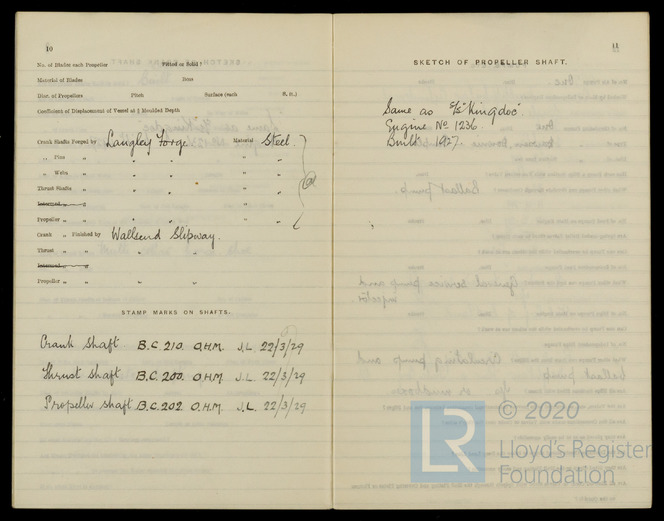 10
No. of Blades each Propeller Fitted or Solid?
Material of Blades Boss
Diar. of Propellers Pitch Surface (each S. ft.)
Coefficient of Displacement of Vessel at ¾ Moulded Depth
Crank Shafts Forged by Langley Forge Material Steel.
„ Pins „ " "
„ Webs „ " "
Thrust Shafts „ " "
Internal „ „
Propeller „ „ " "
Crank „ Finished by Wallsend Slipway.
Thrust „ „ " "
Internal „ „
Propeller „ „ " "
STAMP MARKS ON SHAFTS.
Crank Shaft B.C. 210. O.H.M. J.L. 22/3/29
Thrust Shaft B.C. 200. O.H.M. J.L. 22/3/29
Propeller Shaft B.C. 202. O.H.M. J.L. 22/3/29
11
SKETCH OF PROPELLER SHAFT.
Same as S/S "Kingdoc"
Engine No 1236.
Built 1927.
LR
© 2020
Lloyd's Register
Foundation